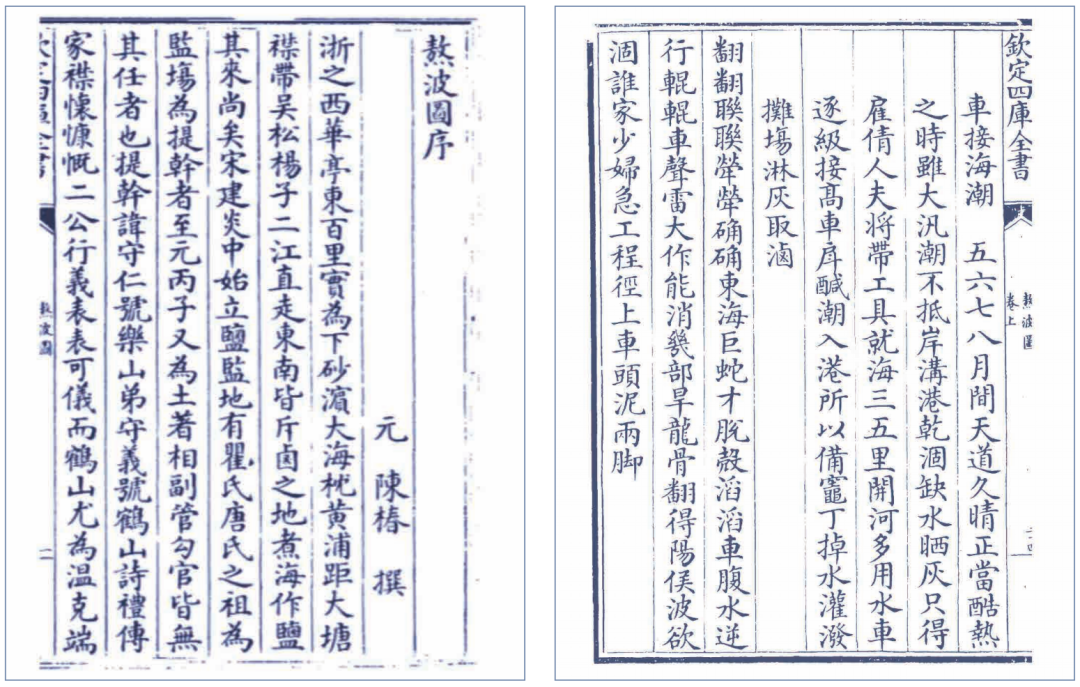 熬波圖序
元 陳椿 撰
浙之西華亭東百里實為下砂濵大海枕黄浦距大塘
襟帶吳松楊子二江直走東南皆斥鹵之地煮海作鹽
其來尚矣宋建炎中始立鹽監地有瞿氏唐氏之祖為
監塲為提幹者至元丙子又為土著相副管勾官皆無
其任者也提幹諱守仁號樂山弟守義號鶴山詩禮傳
家襟懷慷慨二公行義表表可儀而鶴山尤為温克端
欽定四庫全書
熬波圖
一
欽定四庫全書
熬波圖
卷上
車接海潮 五六七八月間天道久晴正當酷熱
之時雖大汛潮不抵岸溝港乾涸缺水晒灰只得
雇倩人夫將帶工具就海三五里開河多用水車
逐級接髙車戽醎潮入港所以備竈丁掉水灌潑
攤塲淋灰取滷
翻翻聯聯犖犖确确東海巨蛇才脫殼滔滔車腹水逆
行輥輥車聲雷大作能消幾部旱龍骨翻得陽侯波欲
涸誰家少婦急工程徑上車頭泥兩脚